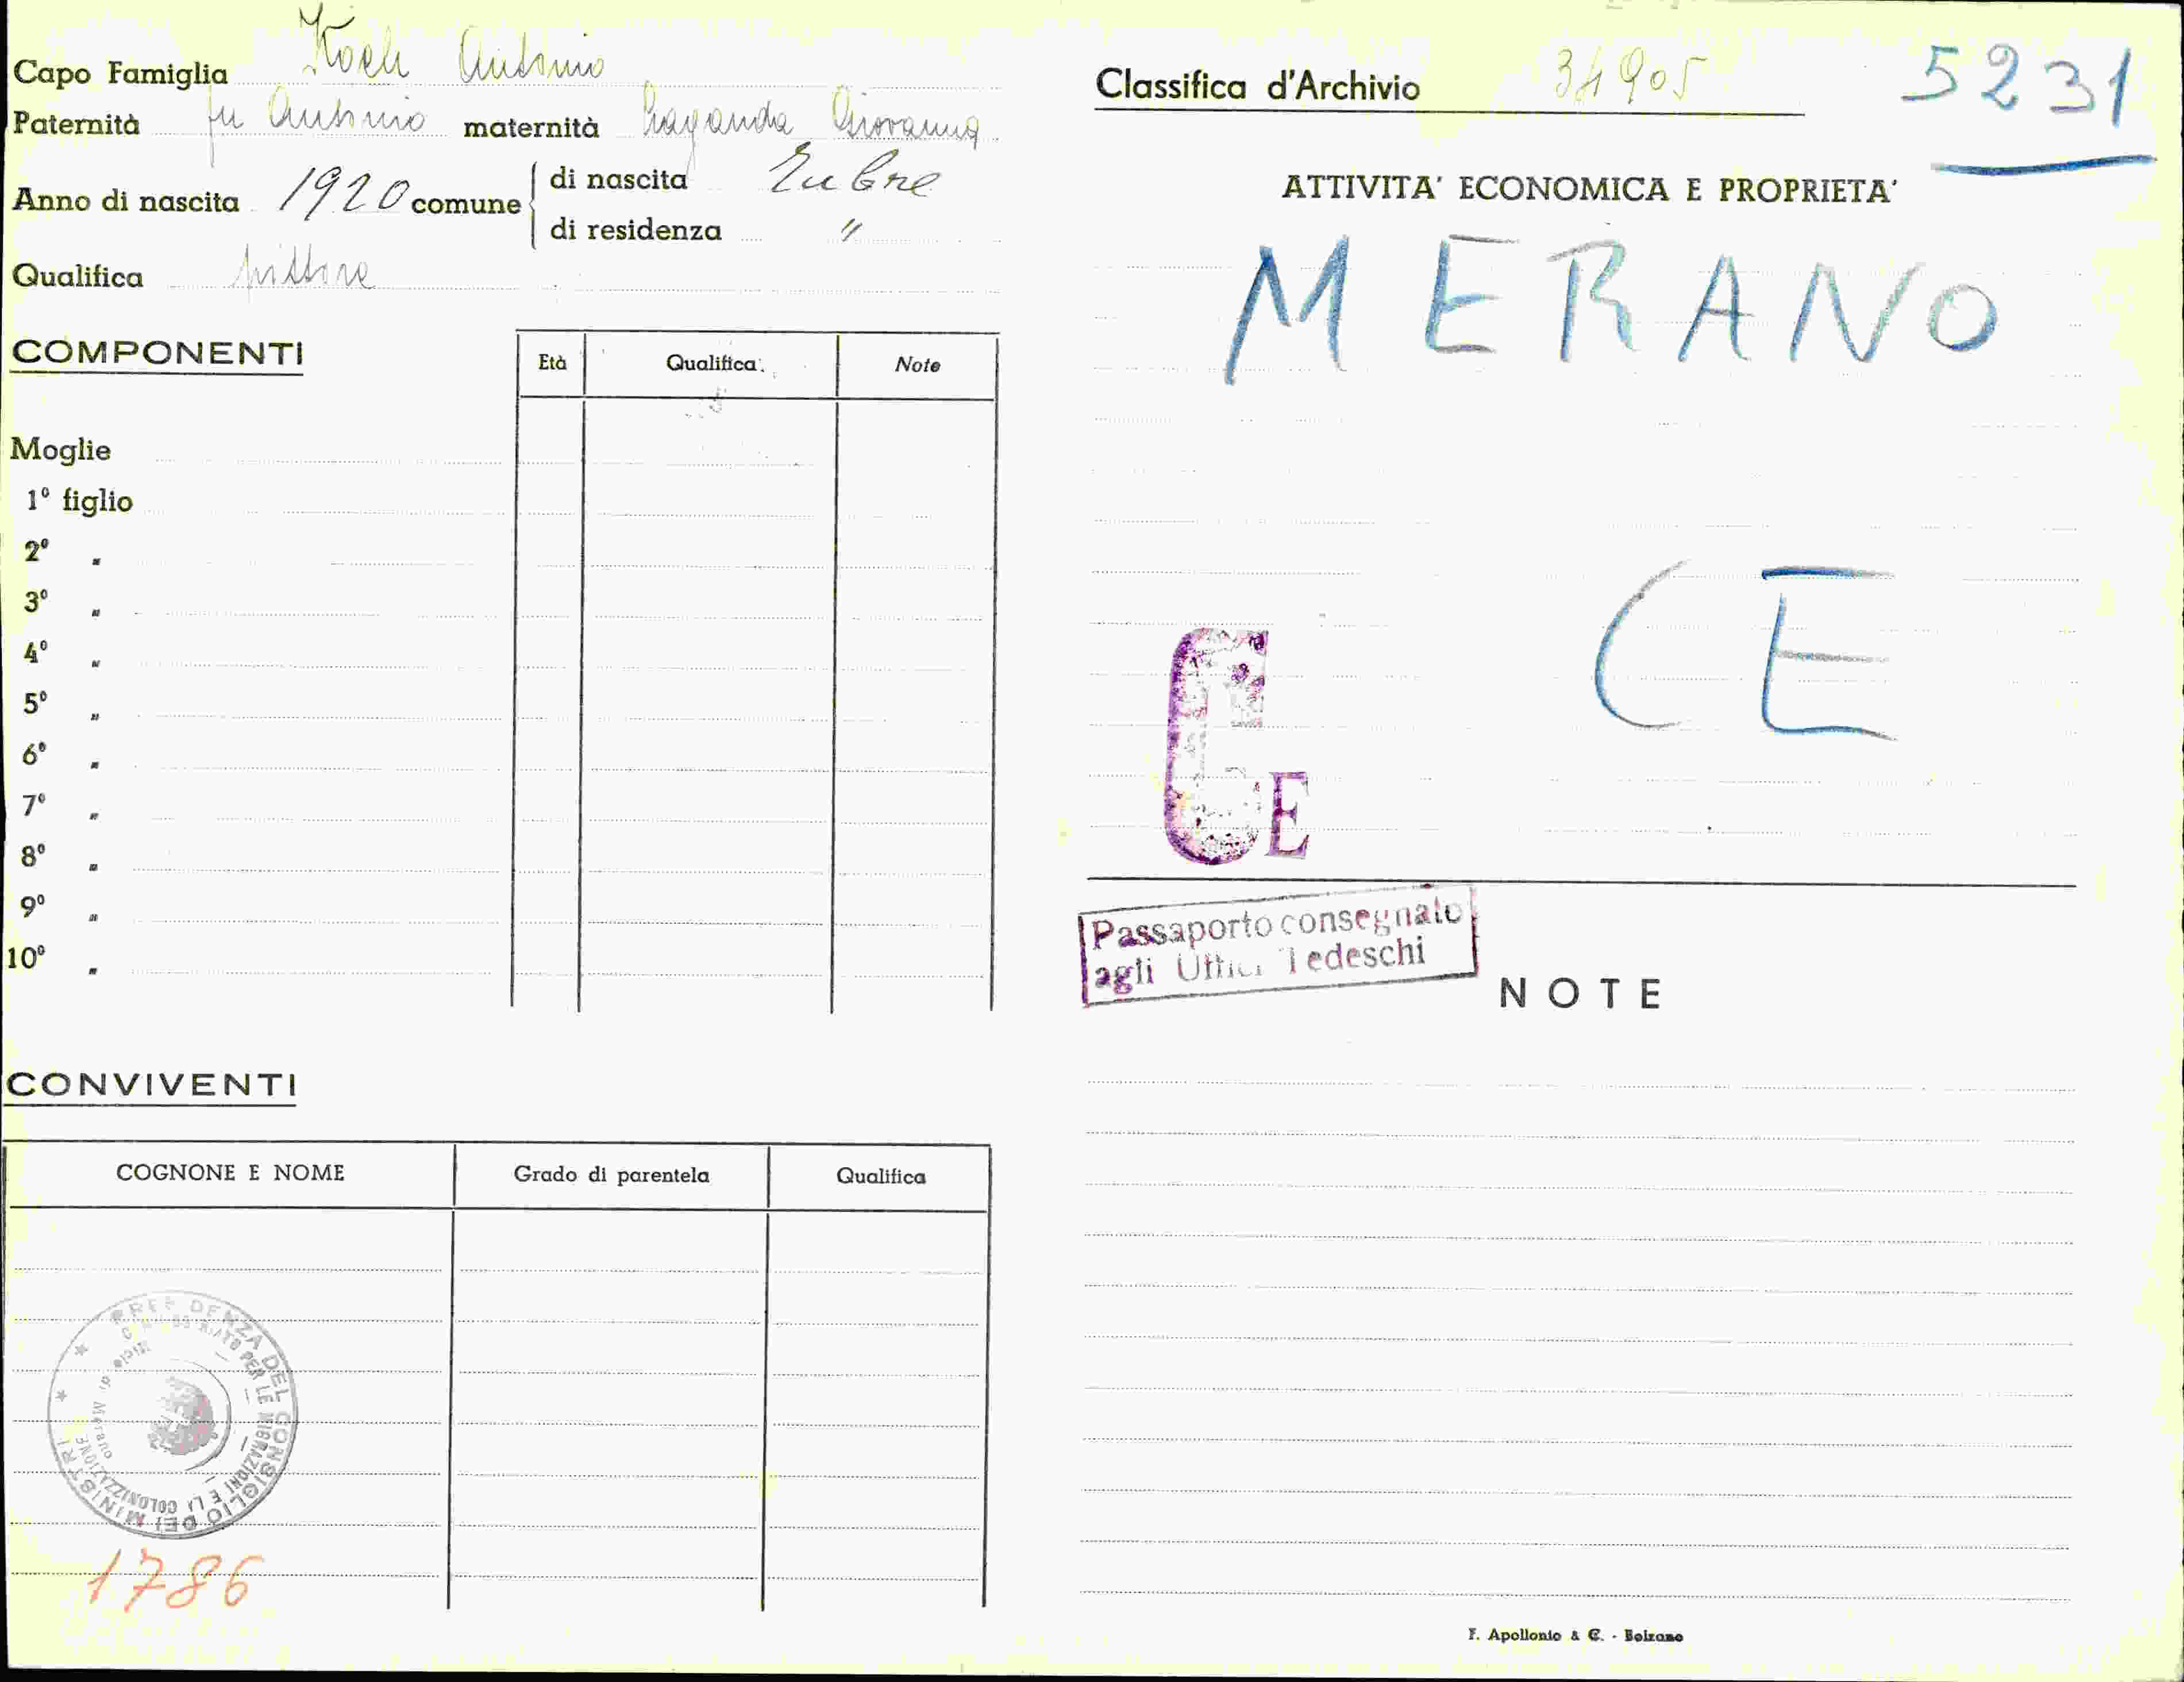 Capo Famiglia Koch Antonio
Paternità fu Antonio maternità Giovanna
Anno di nascita 1920 comune di nascita Tubre
di residenza "
Qualifica pittore
COMPONENTI
Età Qualifica Note
Moglie
1º figlio
2º "
3º "
4º "
5º "
6º "
7º "
8º "
9º "
10º "
CONVIVENTI
COGNONE E NOME Grado di parentela Qualifica
PRESIDENZA DEL CONSIGLIO DEI MINISTRI
PER LE MIGRAZIONI E LA COLONIZZAZIONE
di Merano
1786
Classifica d'Archivio 34905 5231
ATTIVITA' ECONOMICA E PROPRIETA'
MERANO
CE
CE
Passaporto consegnato
agli Uffici Tedeschi
NOTE
F. Apollonio & C. - Bolzano